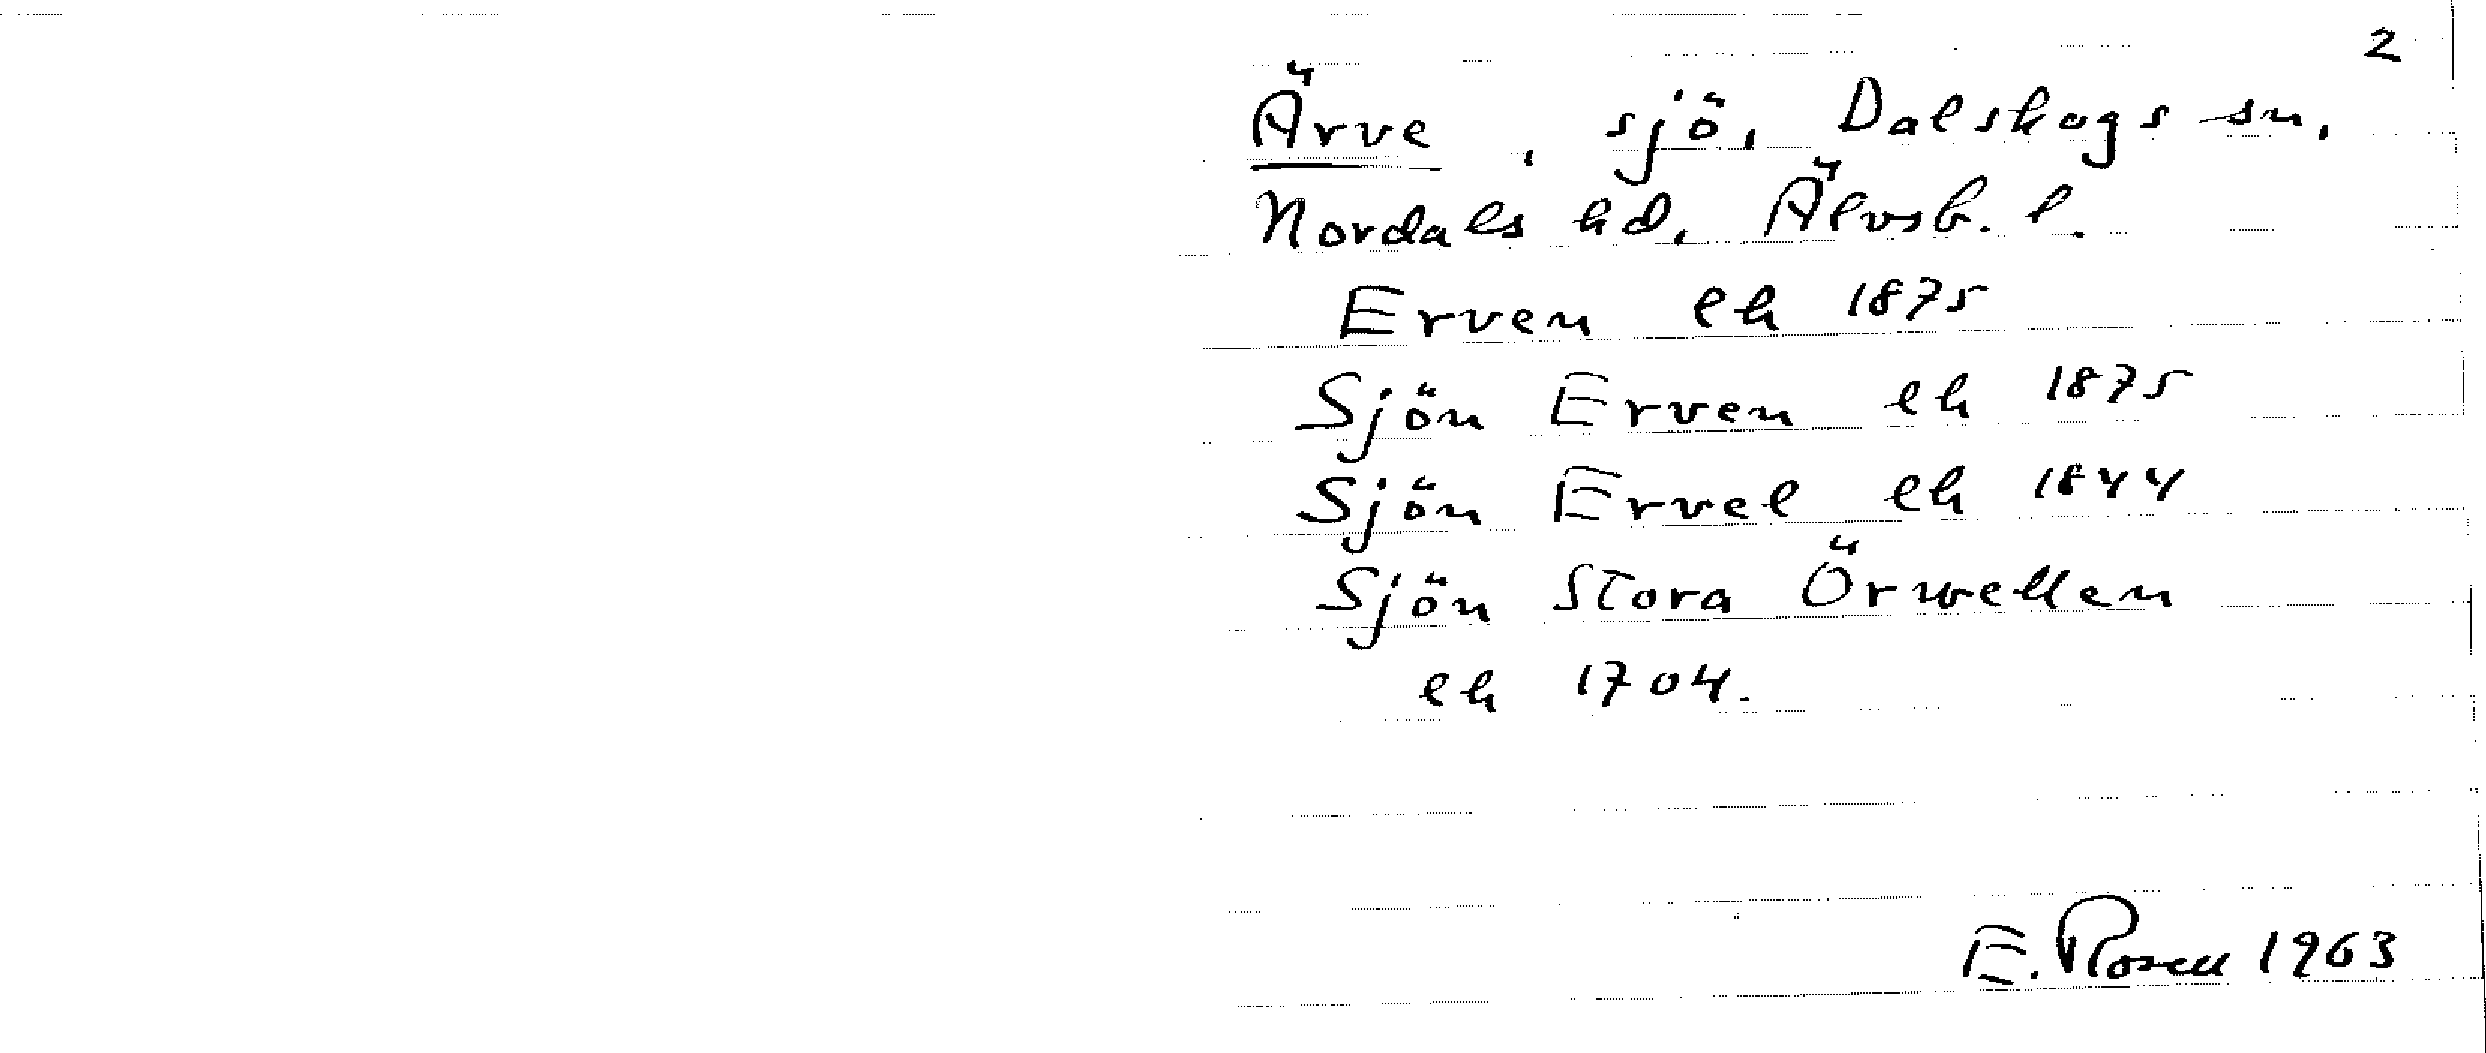 2
Ärve, sjö, Dalskogs sn,
Nordals hd, Älvsb. l.
Erven ek 1875
Sjön Erven ek 1875
Sjön Ervel ek 1844
Sjön Stora Örwellen
ek 1704.
E. Rosell 1963